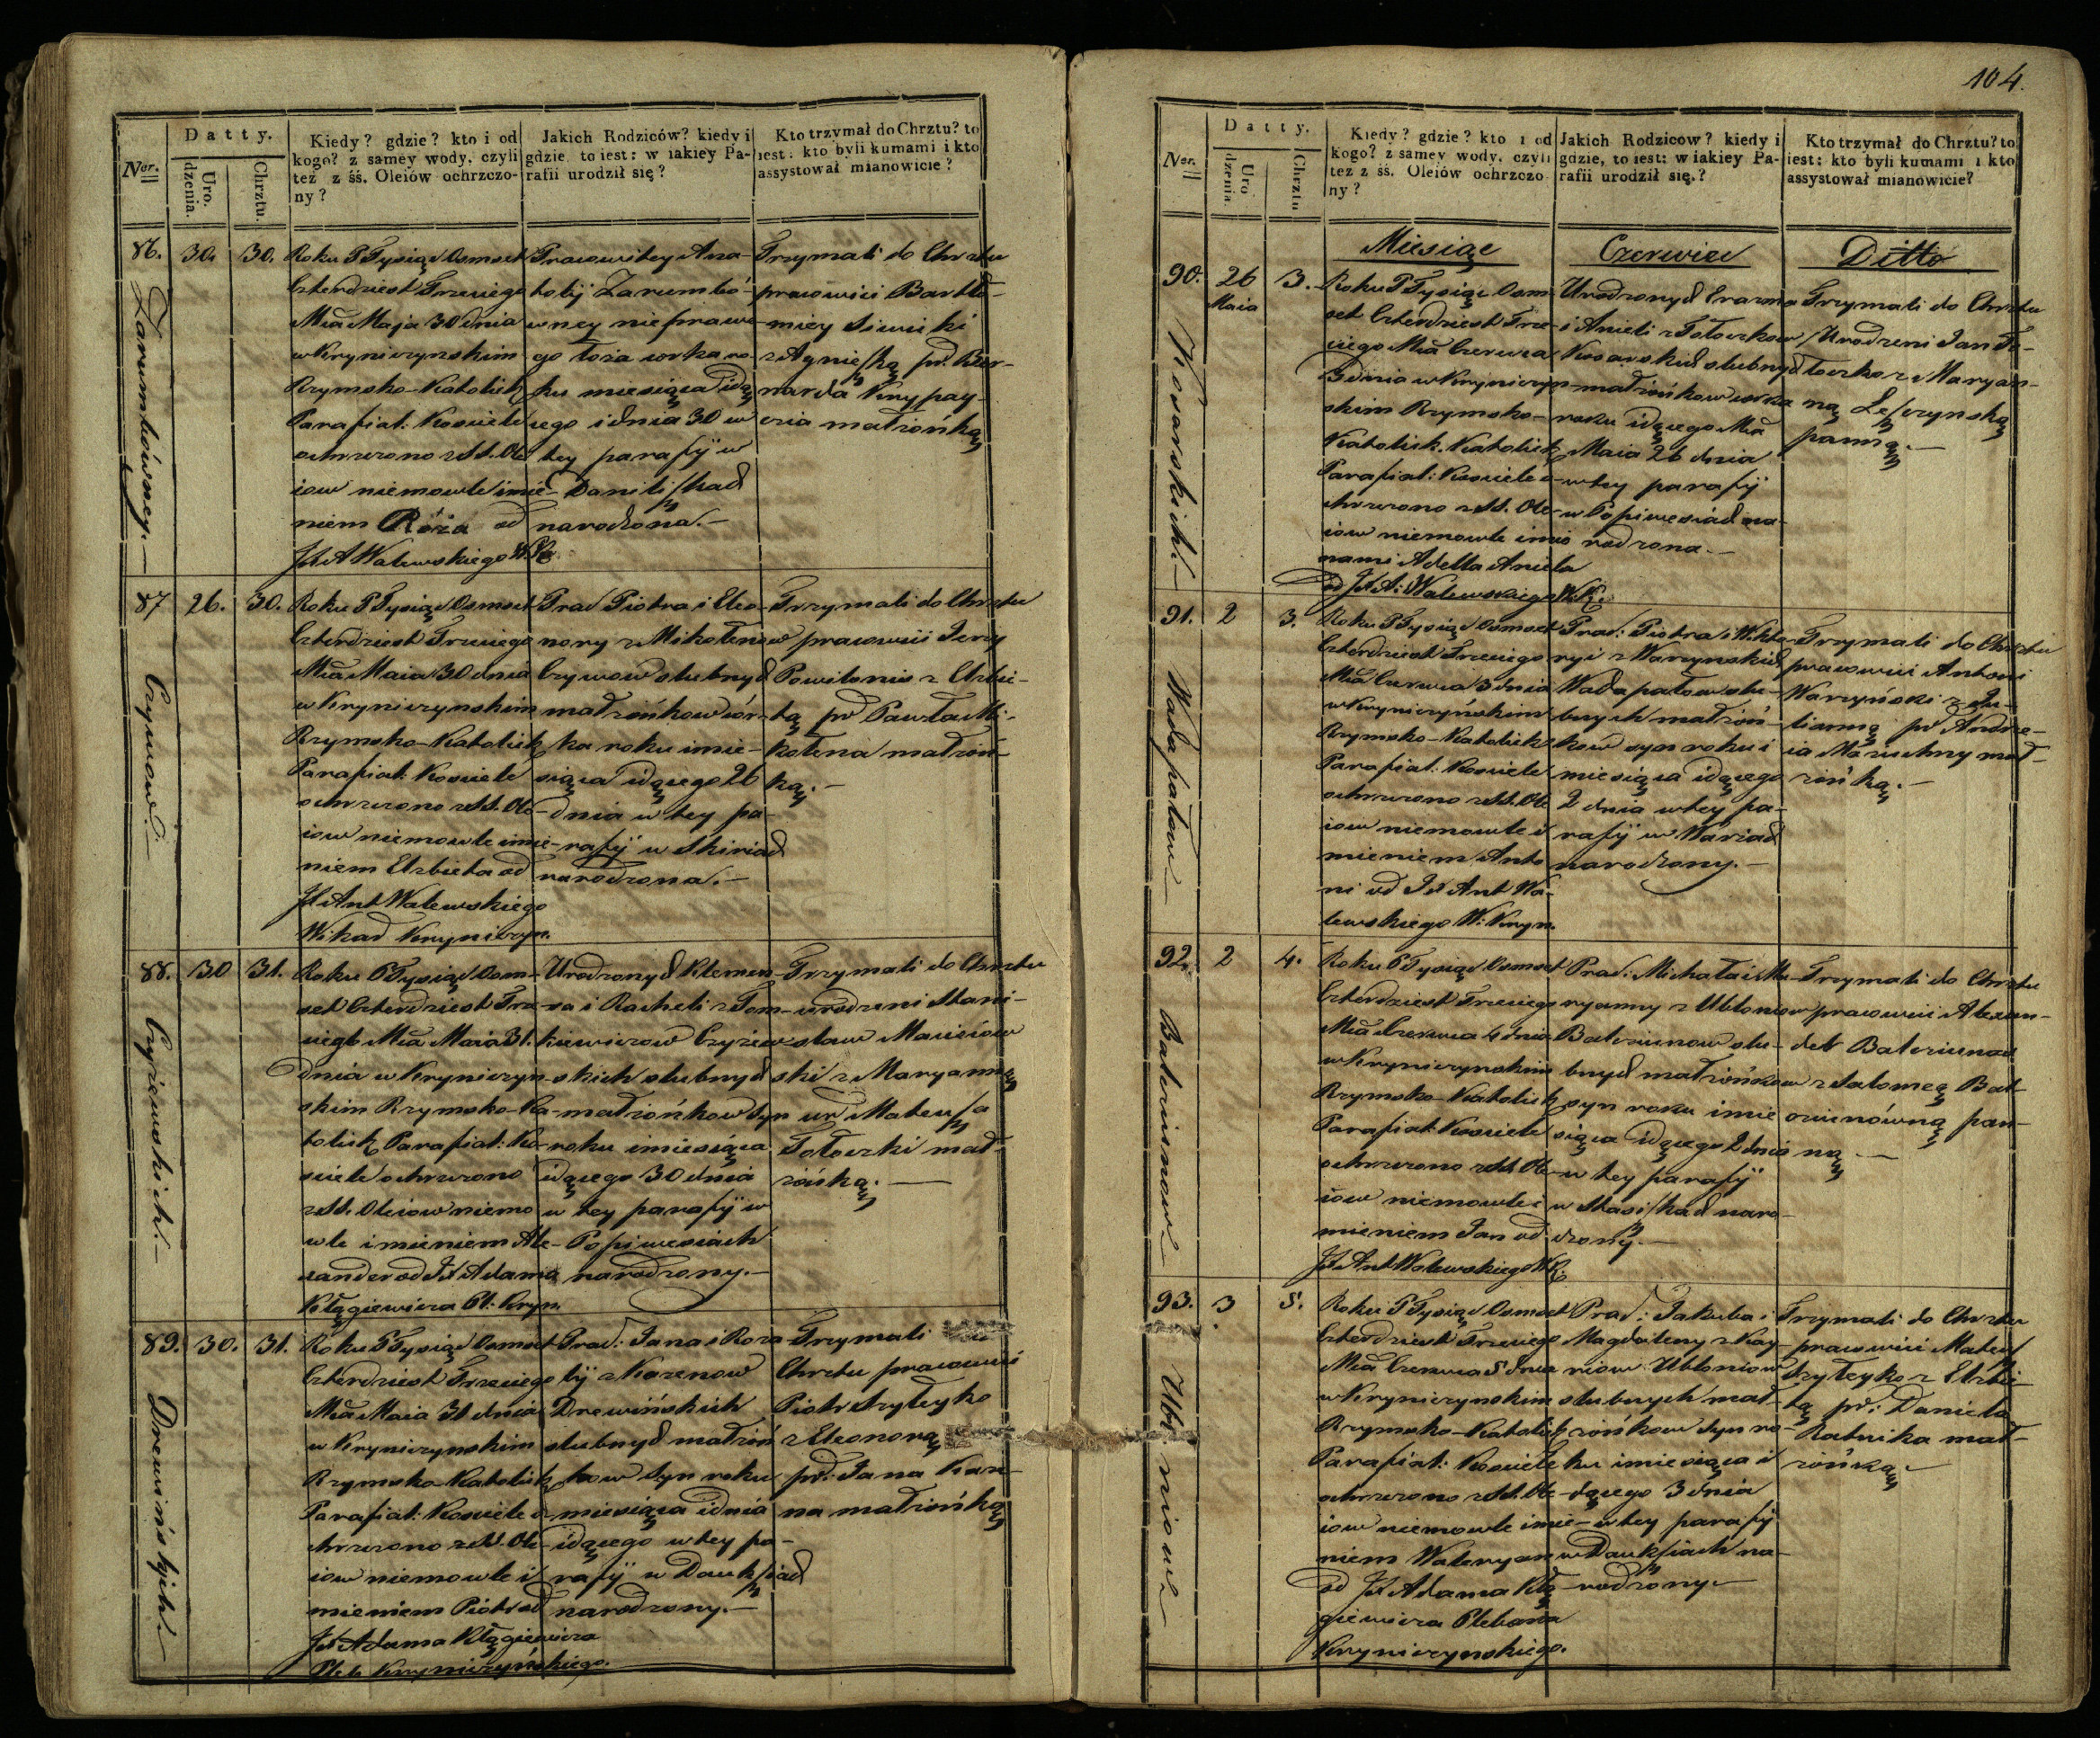 104.
Datty.
Nor.
Uro-
dzenia.
Chrztu.
Kiedy? gdzie? kto i od
kogo? z samey wody, czyli
też z śś. Oleiów ochrzczo-
ny?
Jakich Rodziców? kiedy i
gdzie, to iest: w iakiey Pa-
rafii urodził się?
Kto trzymał do Chrztu? to
iest: kto byli kumami i kto
assystował mianowicie?
86.
30.
30.
Zarembówney.—
Roku P Tysiąc Osmset
Czterdziest Trzeciego
Mca Maja 30 dnia
w Kryniczynskim
Rzymsko-Katolick
Parafial: Kosciele
ochrzczono z SS. Ole
iow niemowle imie-
niem Róża od
Jx A Walewskiego W.K.
Pracowitey Ana-
tolij Zarembó-
wney nieprawe-
go łoża corka ro-
ku miesiąca idą
cego i dnia 30 w
tey parafij w
Daniliszkach
narodzona.—
Trzymali do Chrztu
pracowici Bartło-
miey Siwicki
z Agnieszką pr. Ber-
narda Krypay-
cia małżonką
87
26.
30.
Czywow.—
Roku P Tysiąc Osmset
Czterdziest Trzeciego
Mca Maia 30 dnia
w Kryniczynskim
Rzymsko-Katolick
Parafial: Kosciele
ochrzczono z SS. Ole-
iow niemowle imie-
niem Elżbieta od
Jx Ant Walewskiego
Wikar Kryniczyn.
Prac Piotra i Eleo-
nory z Mikołenow
Czywow slubnych
małżonkow cór-
ka roku i mie-
siąca idącego 26
dnia w tey pa-
rafij w Skiriach
narodzona.—
Trzymali do Chrztu
pracowici Jerzy
Powilonis z Elżbie-
tą pr Pawła Mi-
kolena małżon-
ką.—
88.
30
31.
Czyżewskich.—
Roku P Tysiąc Osm-
set Czterdziest Trze-
ciego Mca Maia 31.
dnia w Kryniczyn-
skim Rzymsko-Ka-
tolick Parafial: Ko-
sciele ochrzczono
z SS. Oleiow niemo
wle imieniem Ale-
xander od Jx Adama
Kłągiewicza Pl: Kryn.
Urodzonych Klemen-
sa i Racheli z Tom-
kiewiczow Czyżew-
skich slubnych
małżonkow syn
roku i miesiąca
idącego 30 dnia
w tey parafij w
Popiwesiach
narodzony.—
Trzymali do Chrztu
urodzeni Stani-
sław Maciiow
ski z Maryanną
ur Mateusza
Tołoczki mał-
żonką.—
89.
30.
31.
Drewińskich
Roku P Tysiąc Osmset
Czterdziest Trzeciego
Mca Maia 31 dnia
w Krynicznynskim
Rzymsko-Katolick
Parafial: Kosciele o
chrzczono z SS. Ole-
iow niemowle i
mieniem Piotr od
Jx Adama Kłągiewicza
Pleb. Kryniczyńskiego.
Prac: Jana i Roza-
lij z Karenow
Drewińskich
slubnych małżon
kow syn roku
miesiąca i dnia
idącego w tey pa-
rafij w Daukszach
narodzony.—
Trzymali
Chrztu pracowici
Piotr Szyłeyko
z Eleonorą
pr: Jana Kan-
na małżonką
Datty.
Nor.
Uro
dzenia.
Chrztu
Kiedy? gdzie? kto i od
kogo? z samey wody, czyli
też z śś. Oleiów ochrzczo
ny?
Jakich Rodziców? kiedy i
gdzie, to iest: w iakiey Pa-
rafii urodził się.?
Kto trzymał do Chrztu? to
iest: kto byli kumami i kto
assystował mianowicie?
Miesiąc Czerwiec Ditto
90.
26
Maia
3.
Kosarskich.—
Roku P Tysiąc Osm
set Czterdziest Trze-
ciego Mca Czerwca
3 dnia w Kryniczyn-
skim Rzymsko-
Katolick. Katolick
Parafial: Kosciele o-
chrzczono z SS. Ole-
iow niemowle imio
nami Adella Aniela
od Jx A: Walewskiego W.K.
Urodzonych Erazma
i Anieli z Tołoczkow
Kosarskich slubnych
małżonkow corka
roku idącego Mca
Maia 26 dnia
w tey parafij
w Popiwesiach na-
rodzona.—
Trzymali do Chrztu
Urodzeni Jan To-
łoczko z Maryan-
ną Leszczynską
panną.—
91.
2
3.
Wadapałow
Roku P Tysiąc Osmset
Czterdziest Trzeciego
Mca Czerwca 3 dnia
w Kryniczyńskim
Rzymsko-Katolick
Parafial: Kosciele
ochrzczono z SS. Ole
iow niemowle i
mieniem Anto
ni od Jx Ant Wa-
lewskiego W: Kryn.
Prac: Piotra i Wikto-
ryi z Warzynskich
Wadapałow slu-
bnych małżon-
kow syn roku i
miesiąca idącego
2 dnia w tey pa-
rafij w Wariach
narodzony.—
Trzymali do Chrztu
pracowici Antoni
Warzyński z Ju-
lianną pr Andrze-
ia Maruchny mał-
żonką.—
92.
2
4.
Roku P Tysiąc Osmset
Czterdziest Trzeciego
Mca Czerwca 4 dnia
w Kryniczynskim
Rzymsko-Katolick
Parafial: Kosciele
ochrzczono z SS. Ole-
iow niemowle i
mieniem Jan od
Jx Ant Walewskiego W.K.
Prac: Michała i Ma-
ryanny z Ubłoniow
slu-
bnych małżonkow
syn roku i mie
siąca idącego 2 dnia
w tey parafij
w Stasiszkach naro-
dzony.—
Trzymali do Chrztu
pracowici Alexan-
der
z Salomeą
pan-
ną—
93.
3
5.
Ubłoniow
Roku P Tysiąc Osmset
Czterdziest Trzeciego
Mca Czerwca 5 dnia
w Kryniczynskim
Rzymsko-Katolick
Parafial: Kosciele
ochrzczono z SS. Ole-
iow niemowle imie-
niem Waleryan
od Jx Adama Kłą-
giewicza Plebana
Kryniczynskiego.
Prac: Jakuba i
Magdaleny z Kay-
riow Ubłoniow
slubnych mał-
żonkow syn ro-
ku i miesiąca i
dącego 3 dnia
w tey parafij
w Daukszach na-
rodzony—
Trzymali do Chrztu
pracowici Mateusz
Szyłeyko z Elżbie
tą pr: Daniela
Ratnika mał-
żonką.—